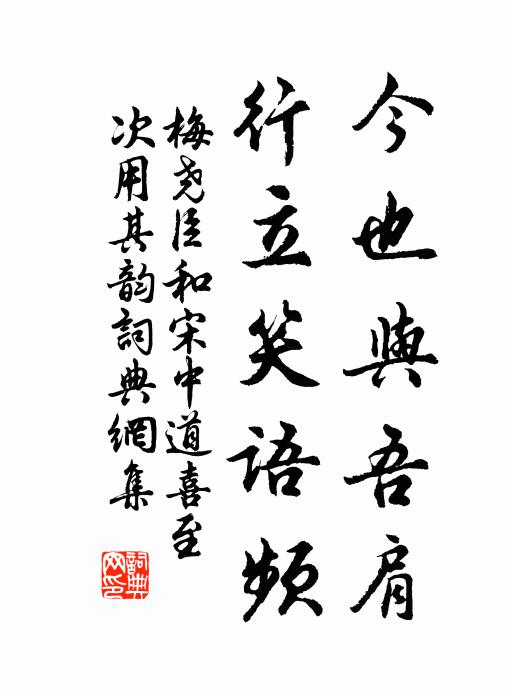 今也與吾肩
行立笑語頻
梅尧臣和宋中道喜至
次用其韵詞典網集
詞典
网印